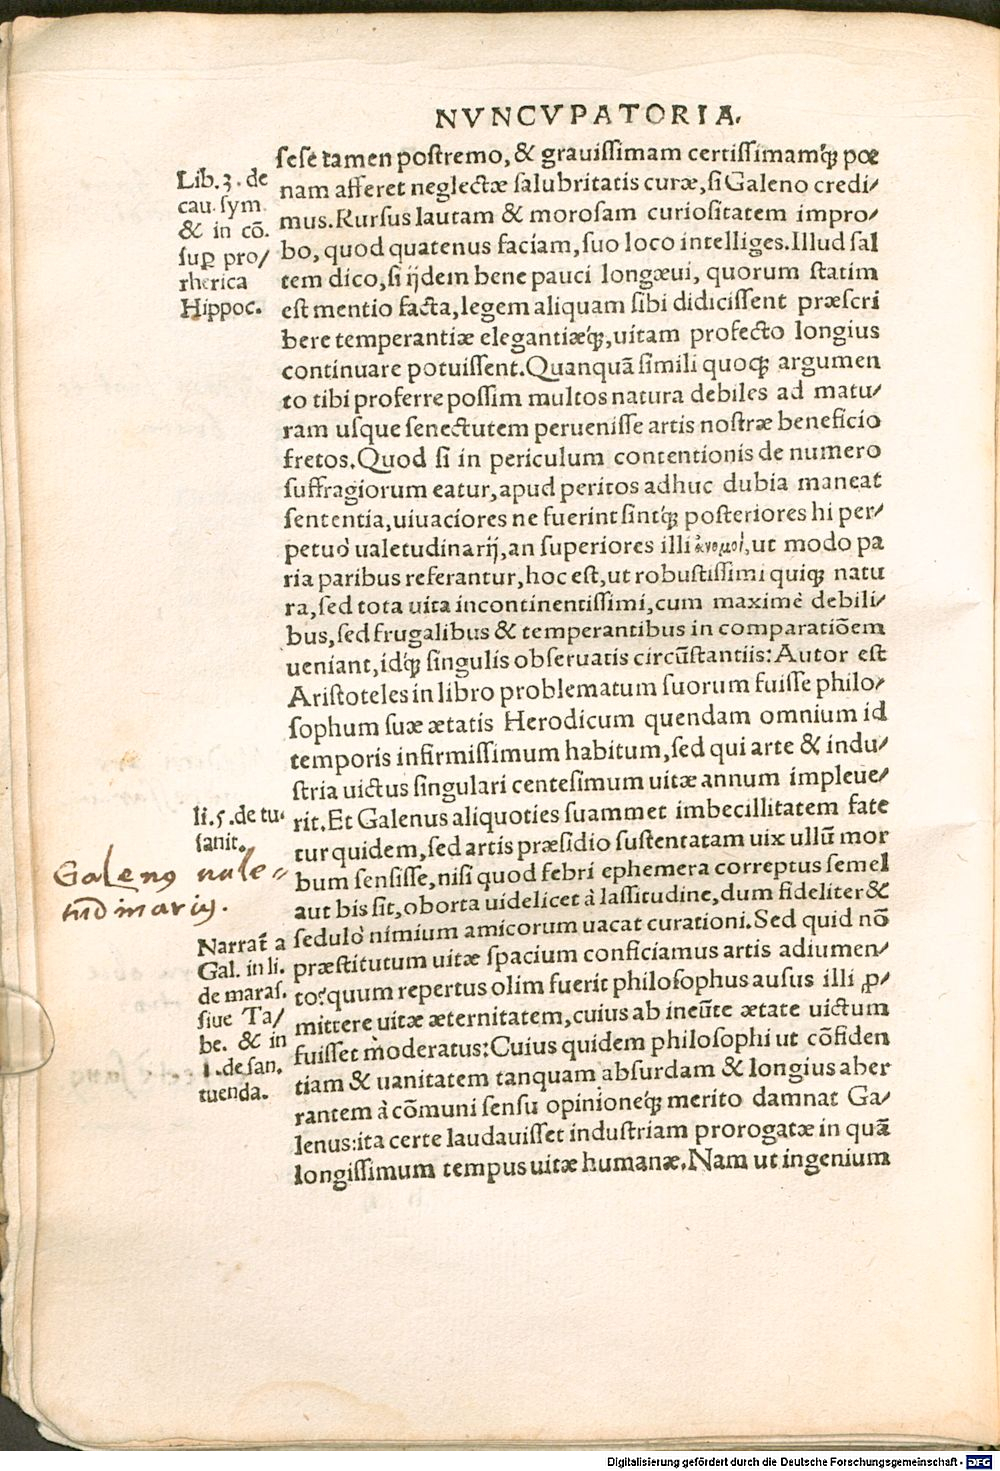 NVNCVPATORIA.
sese tamen postremo, & grauissimam certissimamq́; pœ
nam afferet neglectæ salubritatis curæ, si Galeno credi/
mus. Rursus lautam & morosam curiositatem impro/
bo, quod quatenus faciam, suo loco intelliges. Illud sal
tem dico, si ijdem bene pauci longæui, quorum statim
est mentio facta, legem aliquam sibi didicissent præscri
bere temperantiæ elegantiæq́;, uitam profecto longius
continuare potuissent. Quanquã simili quoq; argumen
to tibi proferre possim multos natura debiles ad matu/
ram usque senectutem peruenisse artis nostræ beneficio
fretos. Quod si in periculum contentionis de numero
suffragiorum eatur, apud peritos adhuc dubia maneat
sententia, uiuaciores ne fuerint sintq́; posteriores hi per/
petuò ualetudinarij, an superiores illi ἀκνομοι, ut modo pa
ria paribus referantur, hoc est, ut robustissimi quiq; natu
ra, sed tota uita incontinentissimi, cum maximè debili/
bus, sed frugalibus & temperantibus in comparatiõem
ueniant, idq́; singulis obseruatis circũstantiis: Autor est
Aristoteles in libro problematum suorum fuisse philo/
sophum suæ ætatis Herodicum quendam omnium id
temporis infirmissimum habitum, sed qui arte & indu/
stria uictus singulari centesimum uitæ annum impleue/
rit. Et Galenus aliquoties suammet imbecillitatem fate
tur quidem, sed artis præsidio sustentatam uix ullũ mor
bum sensisse, nisi quod febri ephemera correptus semel
aut bis sit, oborta uidelicet à lassitudine, dum fideliter &
sedulò nimium amicorum uacat curationi. Sed quid nõ
præstitutum uitæ spacium conficiamus artis adiumen/
to? quum repertus olim fuerit philosophus ausus illi ꝓ/
mittere uitæ æternitatem, cuius ab ineũte ætate uictum
fuisset moderatus: Cuius quidem philosophi ut cõfiden
tiam & uanitatem tanquam absurdam & longius aber
rantem à cõmuni sensu opinioneq́; merito damnat Ga/
lenus: ita certe laudauisset industriam prorogatæ in quã
longissimum tempus uitæ humanæ. Nam ut ingenium
Lib. 3. de
cau. sym
& in cõ.
suꝑ pro/
rhetica
Hippoc.
li. 5. de tu.
sanit.
Galenus uale=
tudinarius.
Narrat̃ a
Gal. in li.
de maras.
siue Ta/
be. & in
1. de san.
tuenda.
Digitalisierung gefördert durch die Deutsche Forschungsgemeinschaft - DFG